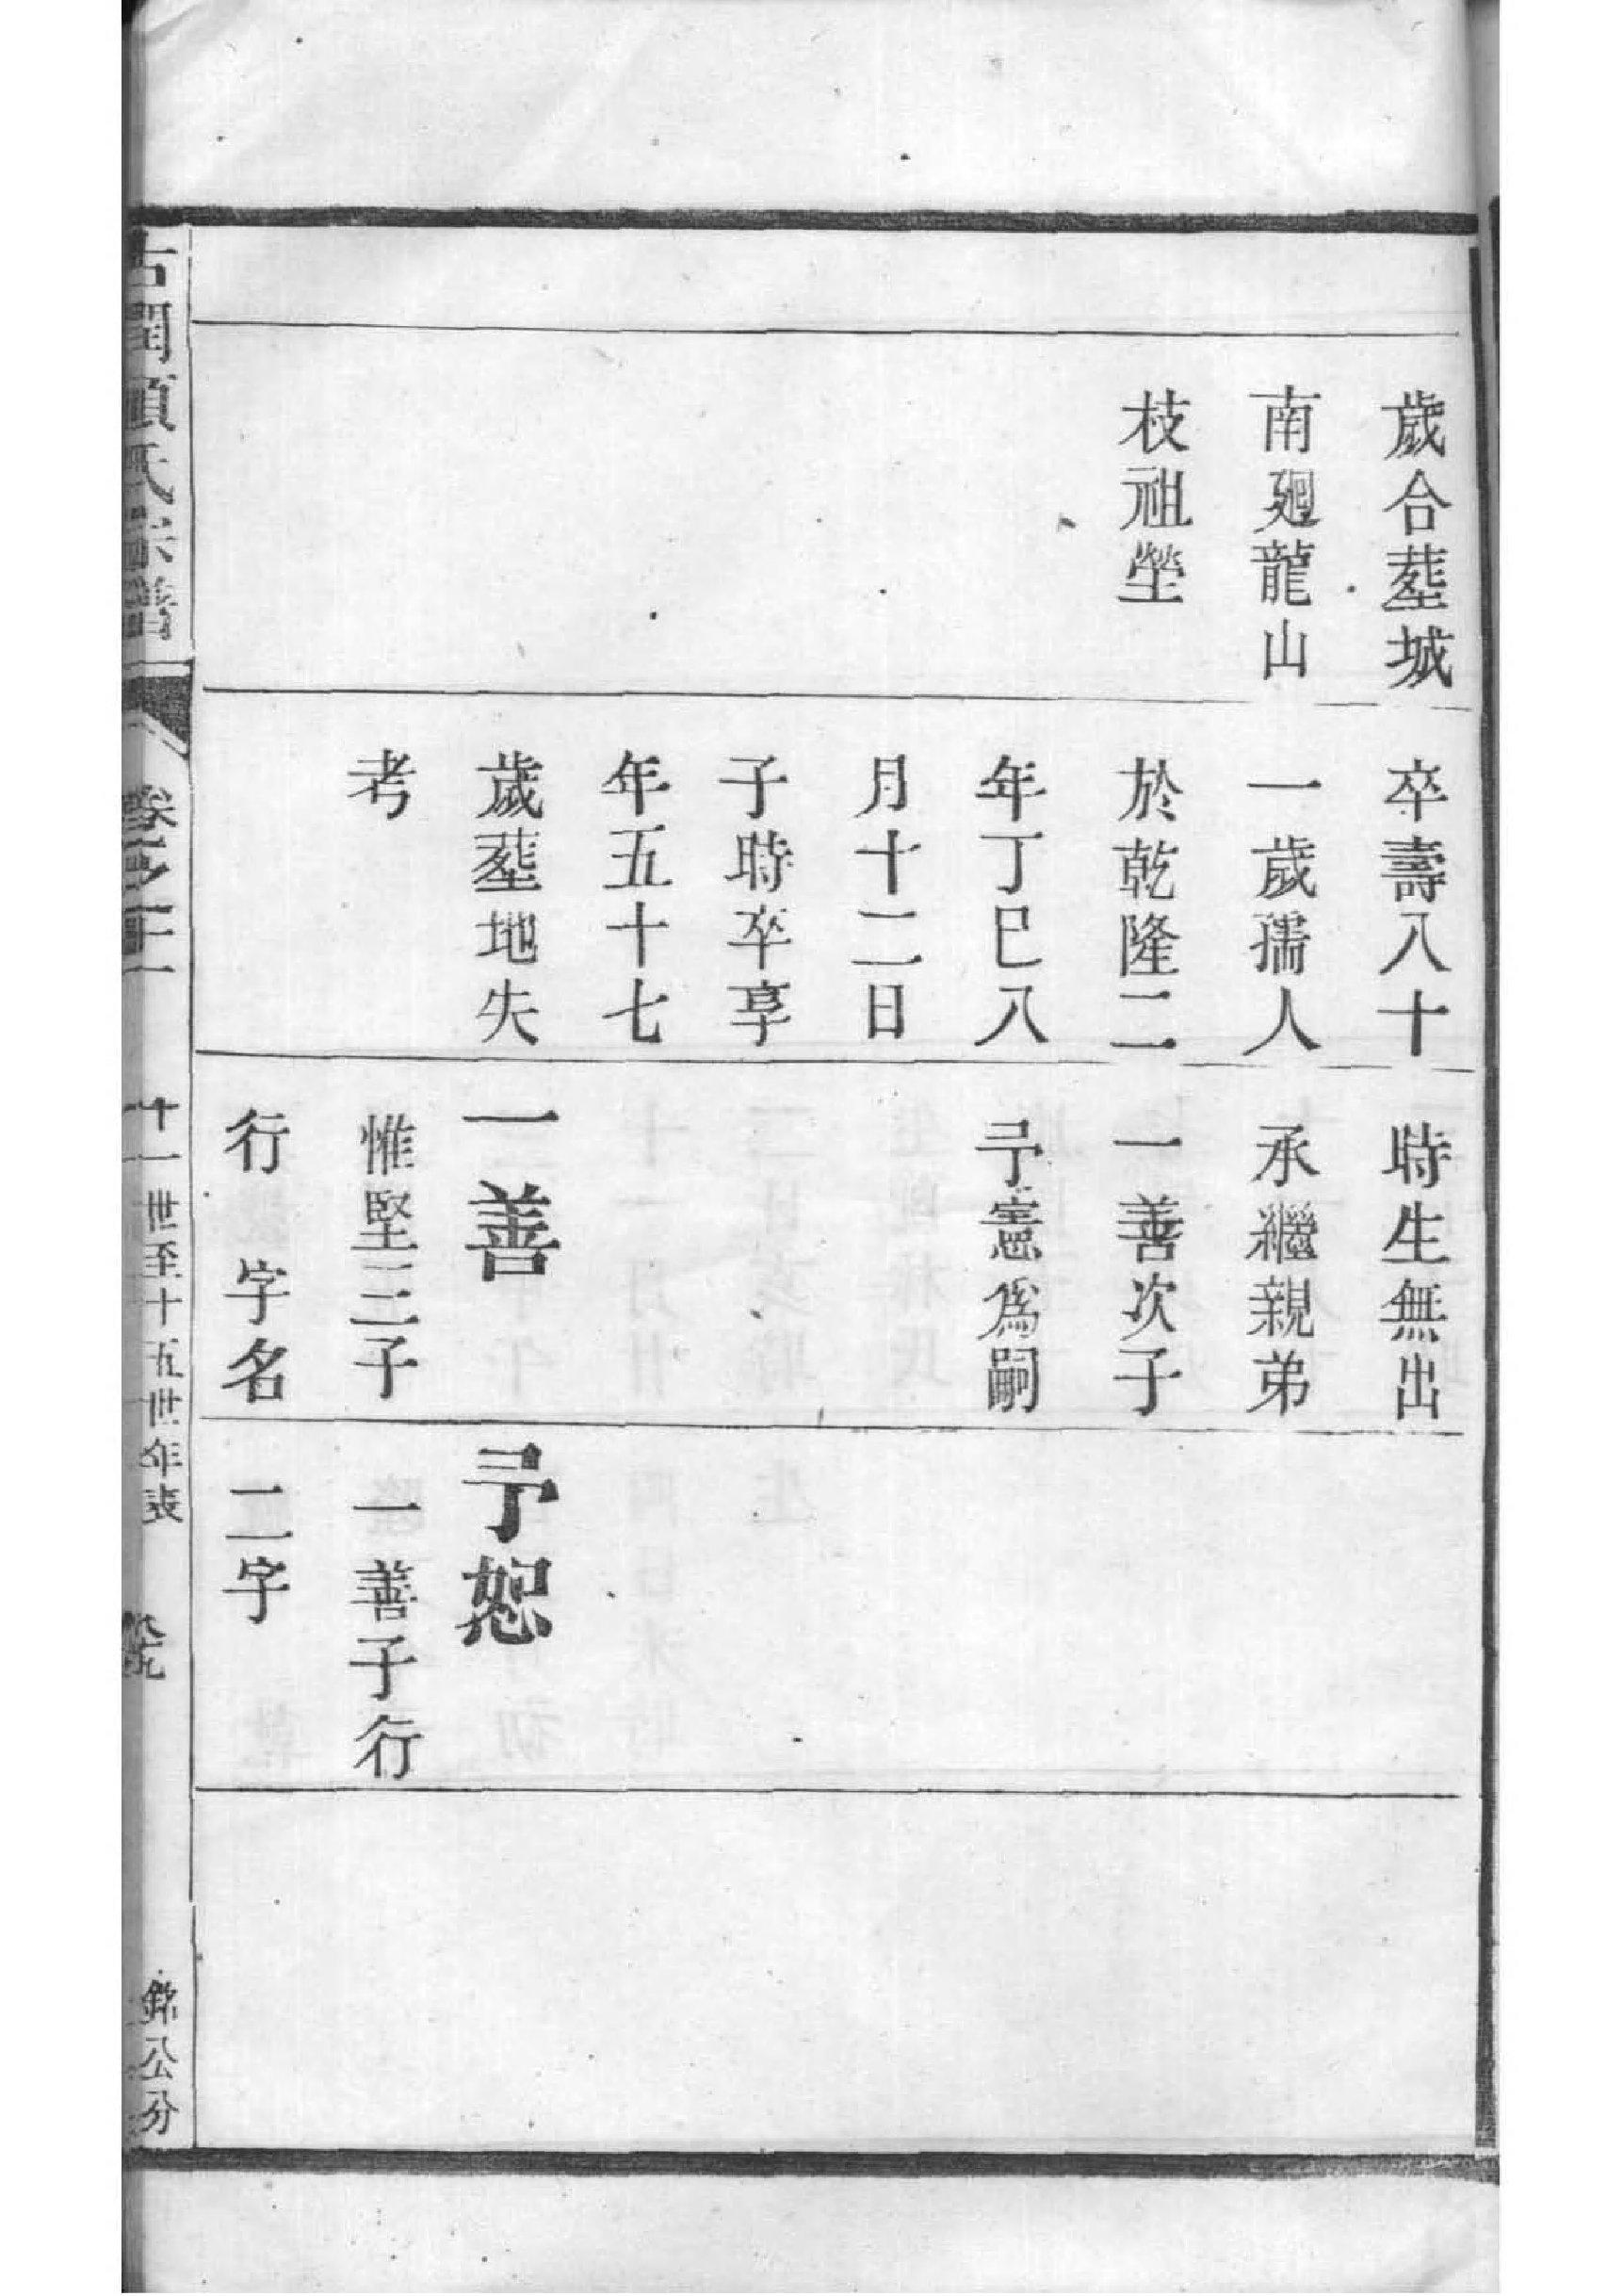 歲合塟城
南𢌞龍山
枝祖塋
卒壽八十
一歲孺人
於乾隆二
年丁巳八
月十二日
子時卒享
年五十七
歲塟地失
考
時生無出
承繼親弟
一善次子
予憲爲嗣
一善
惟堅三子
行 字名
予恕
一善子行
二字
十一世至十五世年表
公分